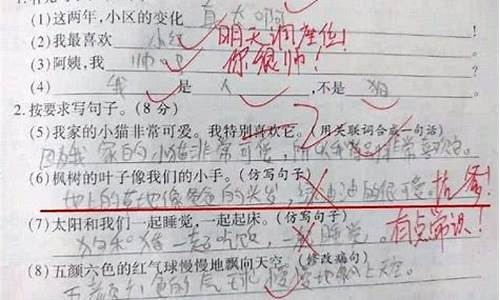 (1)这两年,小区的变化 真大啊
(2)我最喜欢 小红 明天调座位!
(3)阿姨,我 帅吗 你很帅!
(4) 我 是 人 ,不是 狗
2.按要求写句子。(8分)
(5)我家的小猫非常可爱。我特别喜欢它。(用关联词合成一句话)
因为我家的小猫非常可爱,所以我特别非常喜欢它。
(6)枫树的叶子像我们的小手。(仿写句子)
地上的草地像爸爸的头发,绿油油的很可爱。 抗议!
(7)太阳和我们一起睡觉,一起起床。(仿写句子)
狗和猪一起吃饭,一起睡觉。 有点常识!
(8)五颜六色的红气球慢慢地飘向天空。(修改病句)
五颜六色的气球慢慢地飘上天空。